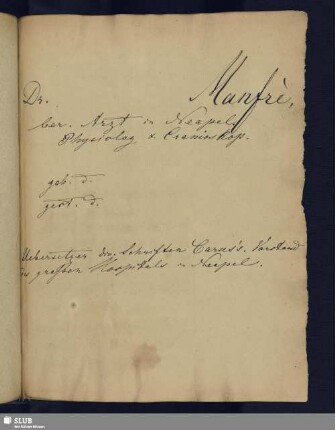 Dr. Manfrè,
ber. Arzt in Neapel.
Physiolog & Cranioskop.
geb. d.
gest. d.
Uebersetzer der Schriften Carus's. Vorstand
des großen Hospitals in Neapel.
SLUB
Wir führen Wissen.